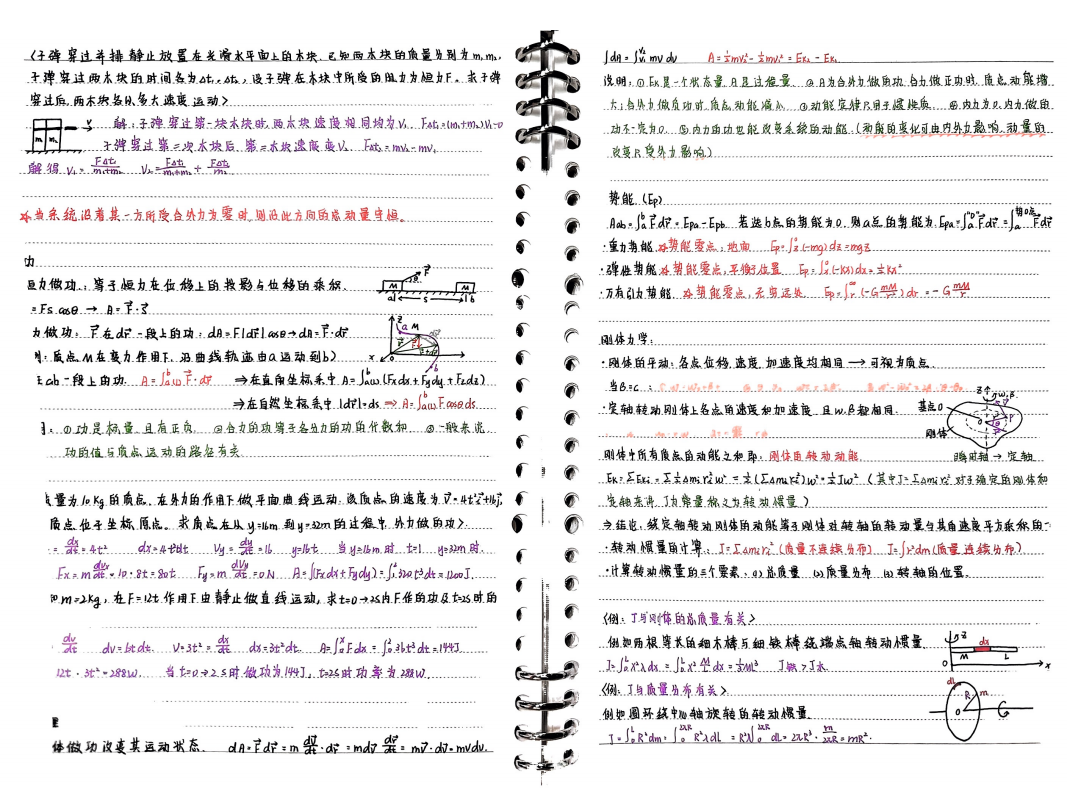 〈子弹穿过并排静止放置在光滑水平面上的木块,已知两木块的质量分别为m₁,m₂,
子弹穿过两木块的时间各为Δt₁,Δt₂,设子弹在木块中所受的阻力为恒力F。求子弹
穿过后,两木块各以多大速度运动〉
m₁ m₂ v
解:子弹穿过第一块木块时,两木块速度相同均为V₁ FΔt₁=(m₁+m₂)V₁-0
子弹穿过第二块木块后,第二木块速度变V₂ FΔt₂=m₂v₂-m₂v₁
解得 V₁=FΔt₁/(m₁+m₂) V₂=FΔt₁/(m₁+m₂)+FΔt₂/m₂
☆当系统沿着某一方所受合外力为零时,则沿此方向的总动量守恒。
力做功:等于恒力在位移上的投影与位移的乘积.
=Fs cosθ → A=F·S
F θ M M a S b
力做功:F在dr一段上的功:dA=F|dr|cosθ→dA=F·dr
:质点M在变力作用下,沿曲线轨迹由a运动到b〉
z a M x b
ab一段上的功 A=∫a(L)ᵇ F·dr ⇒在直角坐标系中 A=∫a(L)ᵇ(Fxdx+Fydy+Fzdz)
⇒在自然坐标系中 |dr|=ds ⇒ A=∫a(L)ᵇ F cosθ ds
:①功是标量,且有正负 ②合力的功等于各分力的功的代数和 ③一般来说
功的值与质点运动的路径有关
质量为10Kg的质点,在外力的作用下做平面曲线运动,该质点的速度为v=4t²i+16j,
质点位于坐标原点。求质点在从y=16m到y=32m的过程中,外力做的功〉
=dx/dt=4t² dx=4t²dt Vy=dy/dt=16 y=16t 当y=16m时 t=1 y=32m时.
Fx=m dvx/dt=10·8t=80t Fy=m dVy/dt=0N A=∫(Fxdx+Fydy)=∫₁320t³dt=1200J.
m=2kg,在F=12t作用下由静止做直线运动,求t=0→2s内F作的功及t=2s时的
dv/dt dv=6tdt. V=3t²=dx/dt dx=3t²dt. A=∫₀ˣFdx=∫₀²36t³dt=144J
12t·3t²=288W. 当t=0→2s时做功为144J,t=2s时功率为288W.
体做功改变其运动状态. dA=F·dr=m dv/dt·dr=mdv·dr/dt=mv·dv=mvdv.
∫dA=∫v₁^v₂ mvdv A=½mv₂²-½mv₁²=Ek₂-Ek₁
说明:①Ek是一个状态量,A是过程量. ②A为合外力做的功,合力做正功时,质点动能增
大;合外力做负功时,质点动能减小 ③动能定律只用于惯性系 ④内力为0,内力做的
功不一定为0. ⑤内力的功也能改变系统的动能.(动能的变化可由内外力影响,动量的
改变只受外力影响)
势能(Ep)
Aab=∫aᵇF·dr=Epa-Epb 若选b点的势能为0,则a点的势能为:Epa=∫a^"0"F·dr=∫a^势0点F·dr
·重力势能 ☆势能零点:地面 Ep=∫z⁰(-mg)dz=mgz
·弹性势能 ☆势能零点:平衡位置 Ep=∫x⁰(-Kx)dx=½Kx²
·万有引力势能 ☆势能零点:无穷远处. Ep=∫r^∞(-G mM/r²)dr=-G mM/r
刚体力学:
·刚体的平动:各点位移,速度,加速度均相同 → 可视为质点
当β=C:
·定轴转动刚体上各点的速度和加速度 且w,β都相同.
基点O 刚体 z w,β r P
瞬时轴 → 定轴
刚体中所有质点的动能之和即:刚体的转动动能
Ek=ΣEki=Σ½Δmiri²w²=½(ΣΔmiri²)w²=½Jw²(其中J=ΣΔmiri² 对于确定的刚体和
定轴来讲,J为常量称之为转动惯量)
⇒结论:绕定轴转动刚体的动能等于刚体对转轴的转动量与其角速度平方乘积的一
·转动惯量的计算:J=ΣΔmiri²(质量不连续分布) J=∫r²dm(质量连续分布)
·计算转动惯量的三个要素:(1)总质量 (2)质量分布 (3)转轴的位置.
〈例:J与刚体的总质量有关〉
例如两根等长的细木棒与细铁棒绕端点轴转动惯量
z dx O M L x
J=∫₀ᴸx²λdx=∫₀ᴸx² M/L dx=⅓ML² J铁>J木
〈例:J与质量分布有关〉
例如圆环绕中心轴旋转的转动惯量
dl R m O
J=∫₀ᴸR²dm=∫₀^2πR R²λdL=R²λ∫₀^2πR dL=2πR³·m/2πR=mR².